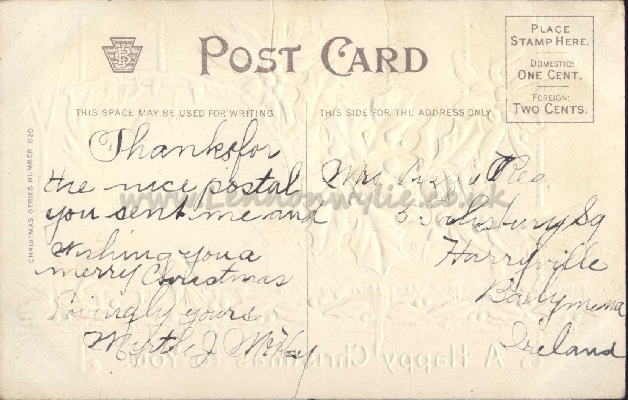 POST CARD
PLACE
STAMP HERE.
DOMESTIC:
ONE CENT.
FOREIGN:
TWO CENTS.
THIS SPACE MAY BE USED FOR WRITING
THIS SIDE FOR THE ADDRESS ONLY
CHRISTMAS SERIES NUMBER 020
Thanks for
the nice postal
you sent me and
Wishing you a
merry Christmas
Lovingly yours
Myrtle J McKay
Mrs Rea
5 Salisbury Sq
Harryville
Ballymena
Ireland
www.lennonwylie.co.uk
A Happy Christmas to You